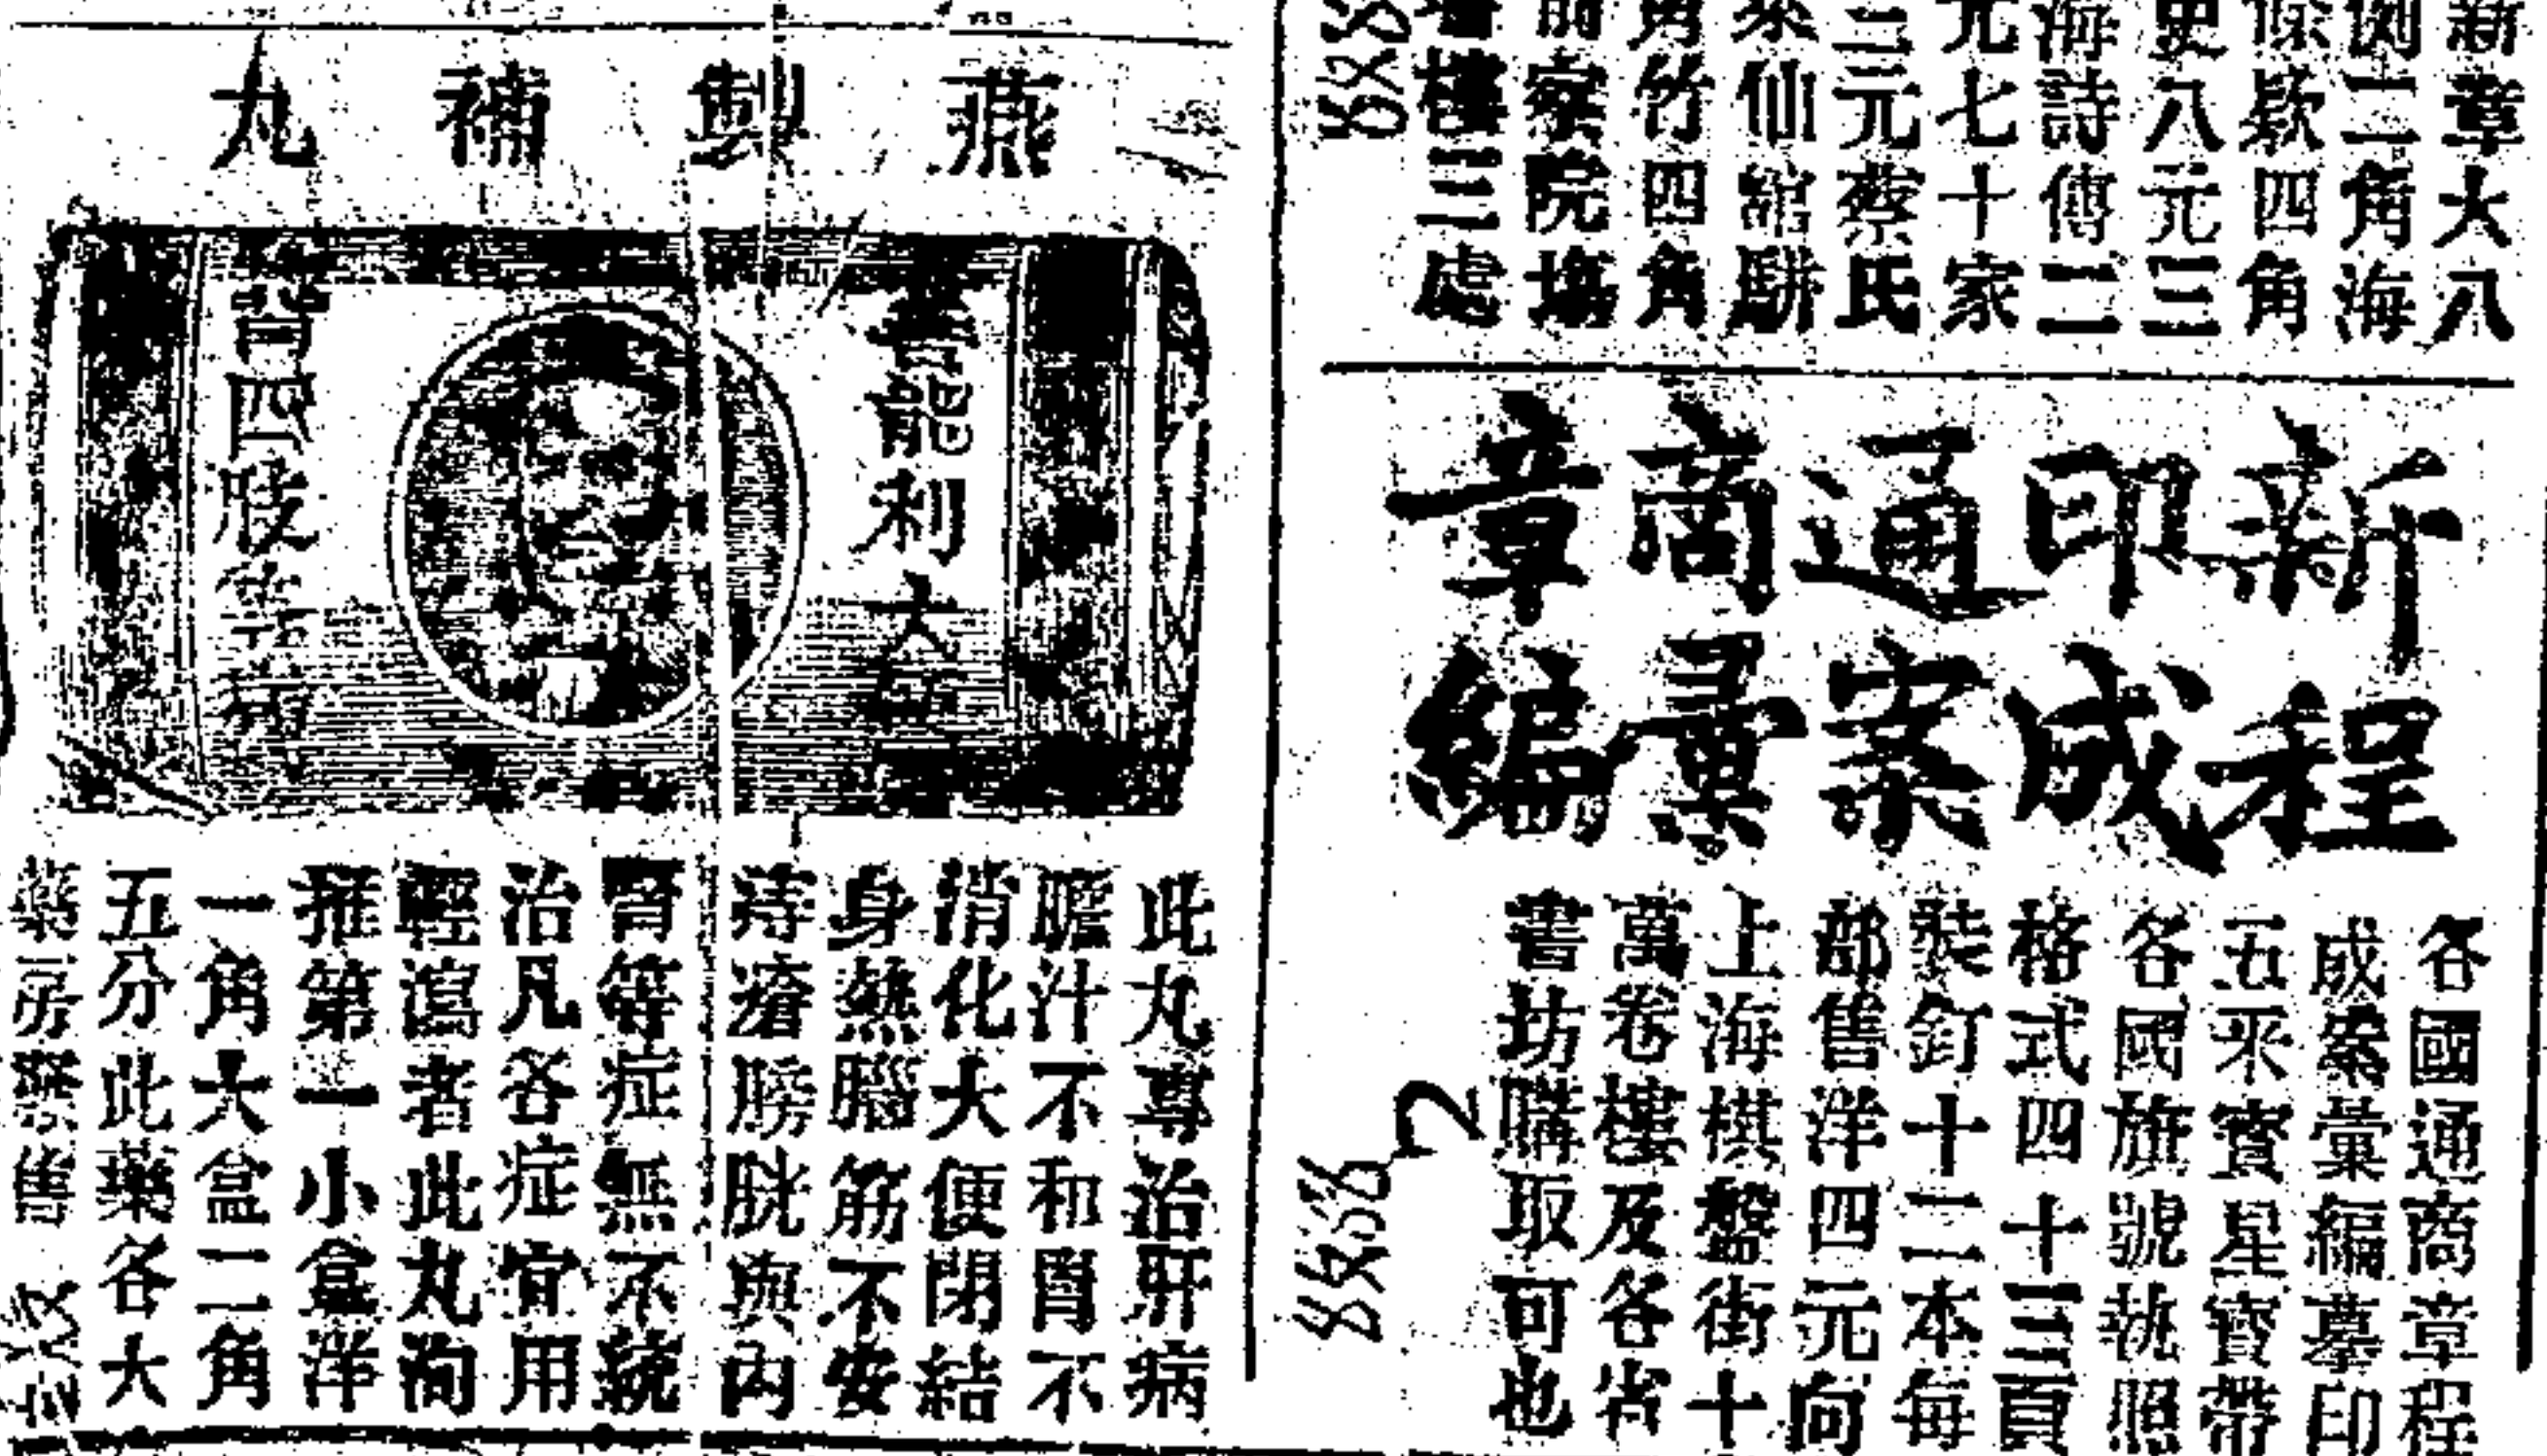 新章大八
例二角海
條欵四角
史八元三
海詩傳二
元七十家
三元蔡氏
仙舘駢
角竹四角
前察院塲
樓三處
新印通商章
程成案彙編
各國通商章程
成案彙編摹印
五采寳星寳帶
各國旂號執照
格式四十三頁
裝釘十二本每
部售洋四元向
上海棋盤街十
萬卷樓及各省
書坊購取可也
燕製補丸
能利大
四肢
此丸專治肝病
膽汁不和胃不
消化大便閉結
身熱腦筋不安
痔瘡膀胱與內
腎等症無不統
治凡各症宜用
輕瀉者此丸洵
推第一小盒洋
一角大盒二角
五分此藥各大
藥房聚售